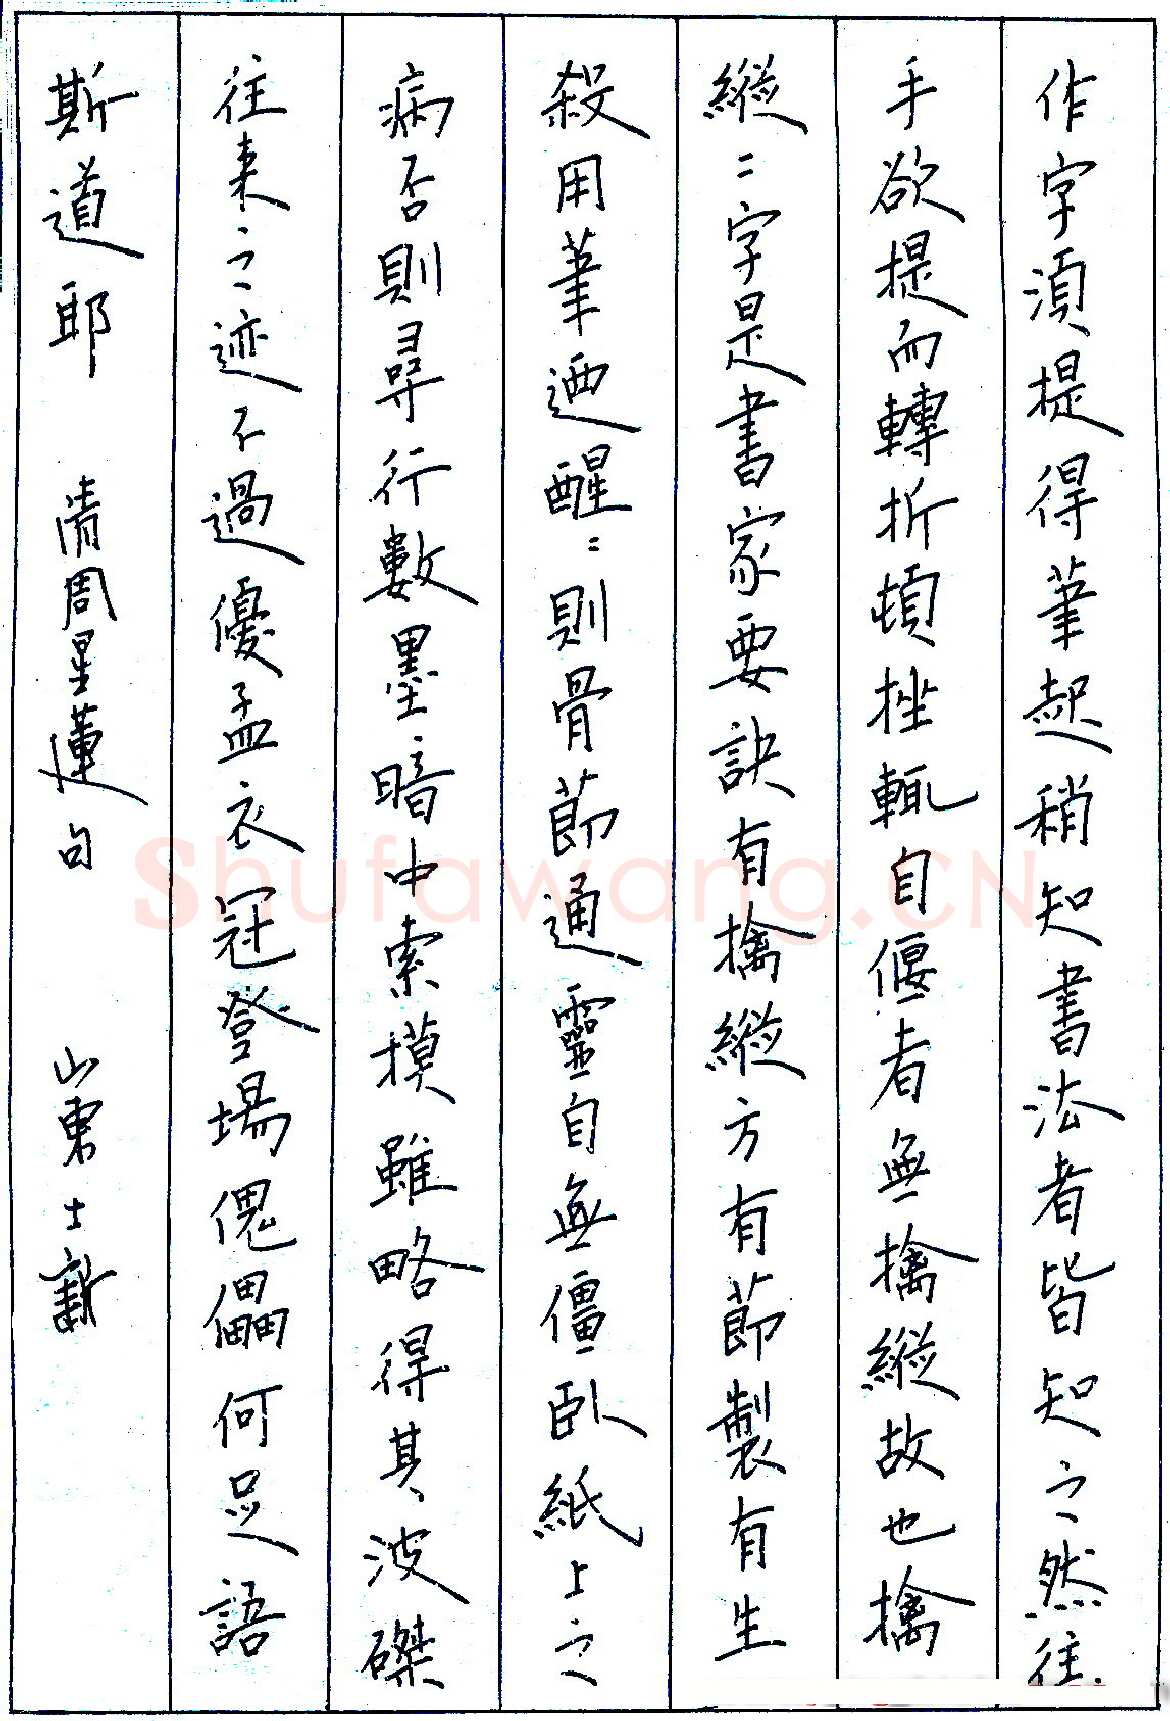 作字須提得筆起稍知書法者皆知之然往
手欲提而轉折頓挫輒自偃者無擒縱故也擒
縱二字是書家要訣有擒縱方有節製有生
殺用筆迺醒=則骨節通靈自無僵臥紙上之
病否則尋行數墨暗中索摸雖略得其波磔
往来之迹不過優孟衣冠登場傀儡何足語
斯道耶 清周星蓮句 山東士新
Shufawang.CN